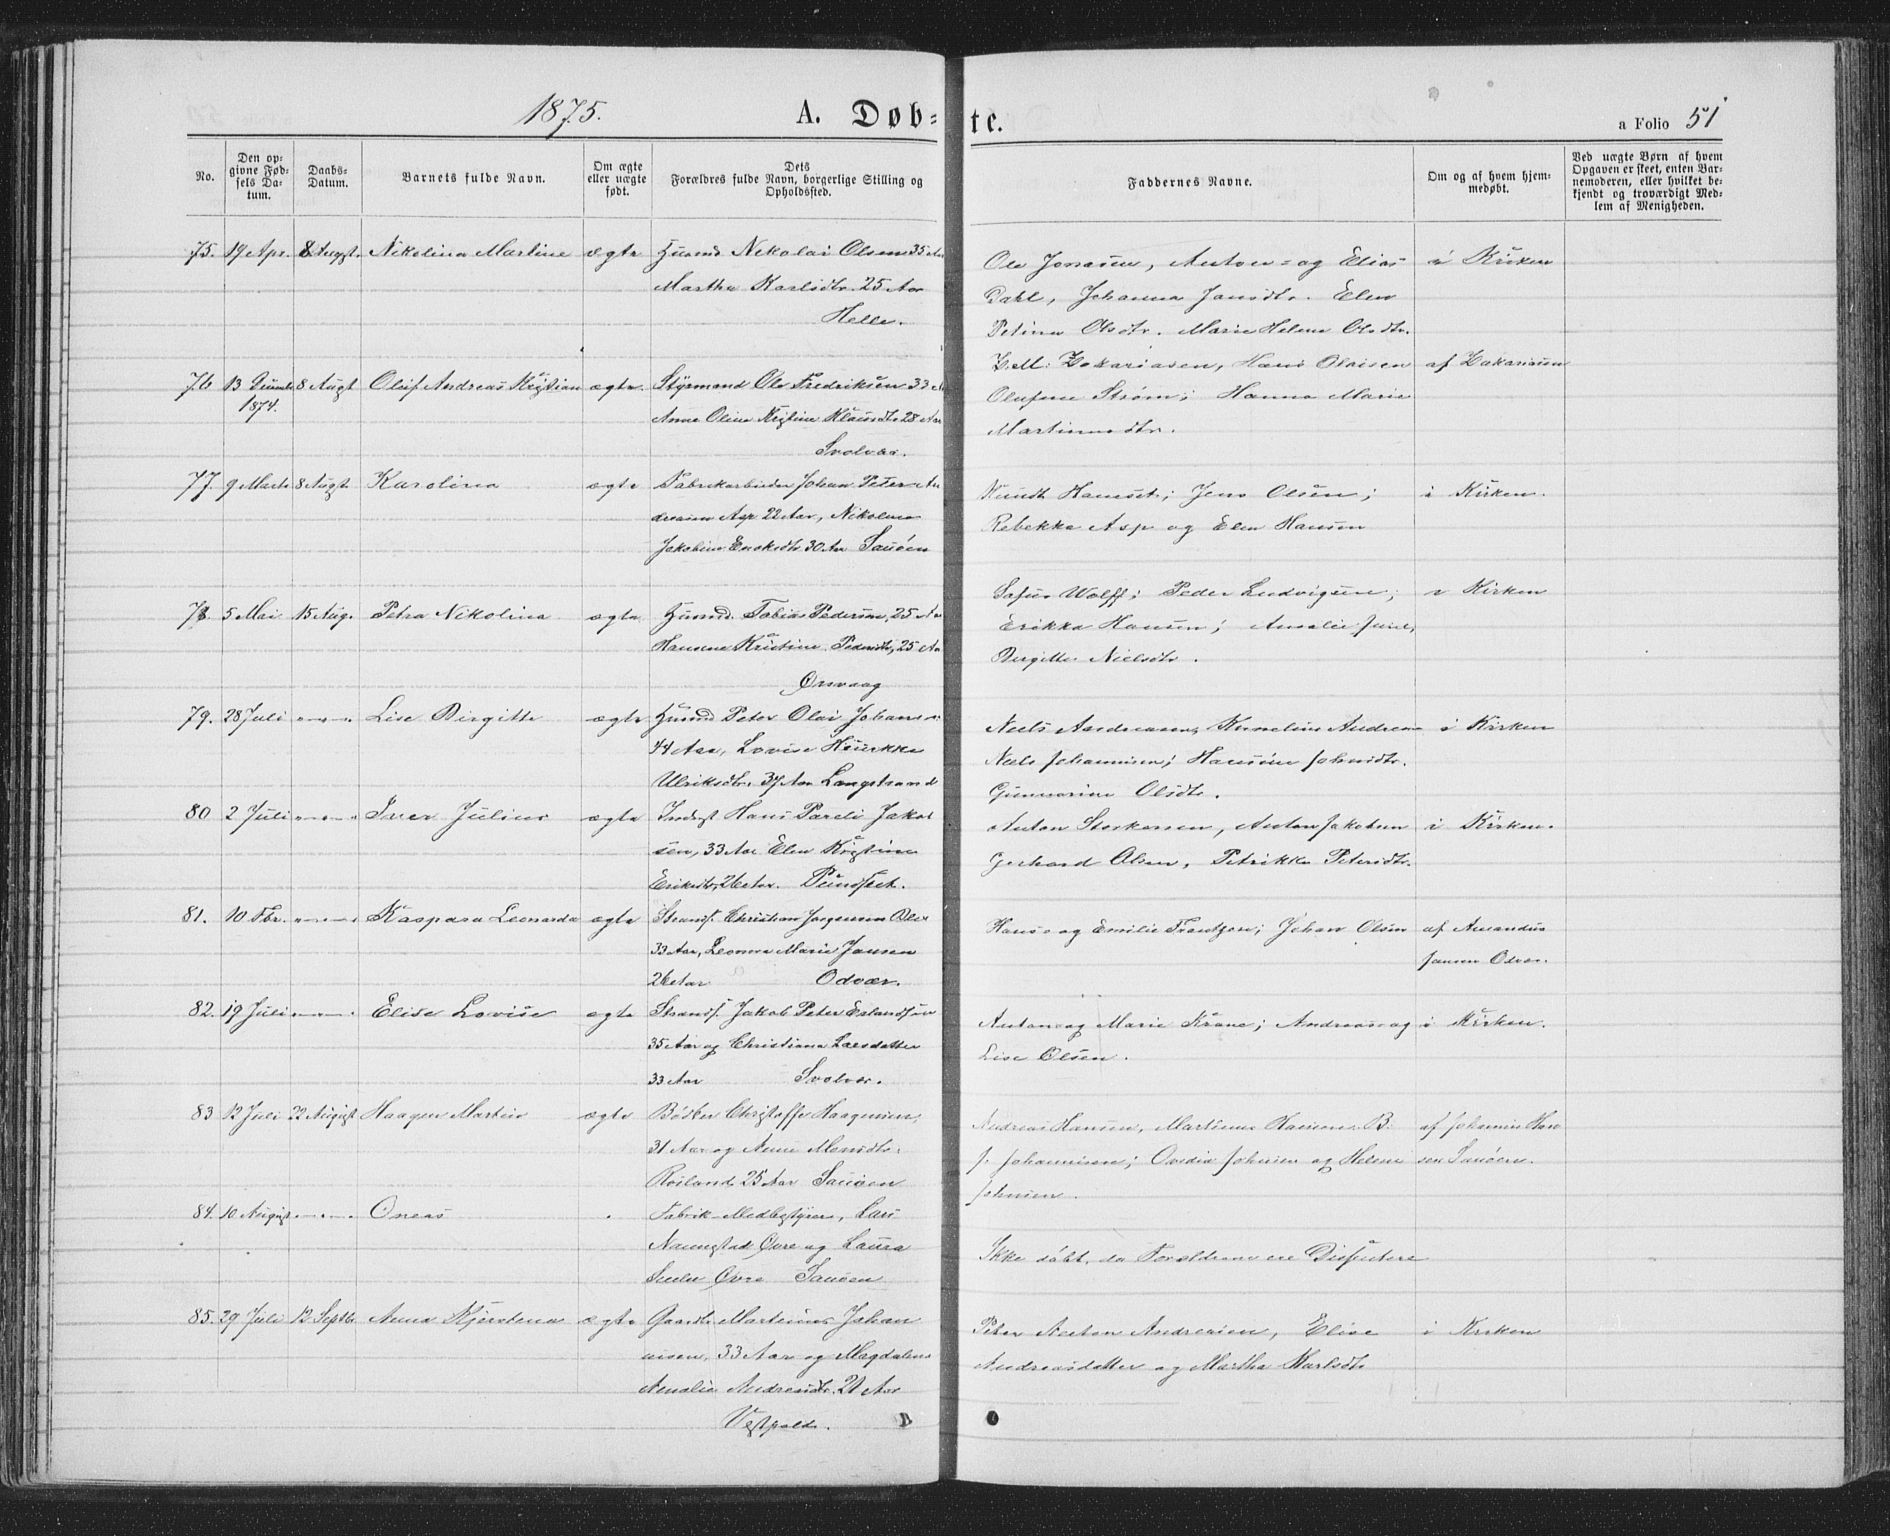 1875.
A. Døb-
te.
a Folio 51
No.
Den op-
givne Fød-
sels Da-
tum.
Daabs-
Datum.
Barnets fulde Navn.
Om ægte
eller uægte
født.
Dets
Forældres fulde Navn, borgerlige Stilling og
Opholdssted.
Faddernes Navne.
Om og af hvem hjem-
medøbt.
Ved uægte Børn af hvem
Opgaven er skeet, enten Bar-
nemoderen, eller hvilket be-
kjendt og troværdigt Med-
lem af Menigheden.
75. 19 Apr. 8 Augst. Nikolina Martine ægte Husmd Nikolai Olsen 35 Aar
Martha Karlsdtr. 25 Aar
Helle.
Ole Jonasen, Anton- og Elias i Kirken
Dahl, Johanna Jansdtr. Elen
Petina Olsdtr. Marie Helene Olsdtr.
76 13 Decmbr 8 Augst Oluf Andreas Kristian ægte. Styrmand Ole Fredriksen 33 Aar
1874.
Anne Oline Kristine Klausdtr 28 Aar
Svolvær.
Z. M. Zakariasen, Hans Olaisen af Zakariasen
Olufine Strøm; Hanna Marie
Martinusdtr.
77. 9 Marts 8 Augst. Karolina ægte Fabrikarbeider Johan Peter An
dreasen Asp 22 Aar, Nikoline
Jakobine Enoksdtr 30 Aar Sauøen
Knudt Hamset; Jens Olsen; i Kirken.
Rebekka Asp og Elen Hansen
78. 5 Mai 15 Aug. Petra Nikolina ægte Husmd. Tobias Pedersen, 25 Aar
Hansine Kristine Pedersdtr, 25 Aar
Ørsvaag
Wolff; Peder Ludvigsen; i Kirken
Erikka Hansen; Amalie Juul,
Birgitte Nielsdtr.
79. 28 Juli -"- Lise Birgitte ægte Husmd Peter Olai Johansen
44 Aar, Lovise Henrikke
Ulriksdtr. 37 Aar Langstrand
Niels Andreasen, Kornelius Andreas i Kirken
Niels Johannesen; Hansine Johnsdtr.
Gunnarine Olsdtr.
80 2 Juli -"- Iver Julius ægte Inderst Hans Pareli Jakob
sen, 33 Aar Elen Kristine
Eriksdtr, 26 Aar. Pundslet.
Anton Storkersen, Anton Jakobsen i Kirken.
Gerhard Olsen, Petrikke Petersdtr.
81. 10 Fbr. -"- Kaspara Leonarda ægte Strands. Christian Jørgensen
33 Aar, Leonna Marie Jansen
26 Aar Odvær.
Hans- og Emilie Frantzen; Johan Olsen af Amandus
Jansen Odvær.
82. 19 Juli -"- Elise Lovise ægte Strands. Jakob Peter Erlandsen
35 Aar og Christiana Larsdatter
33 Aar Svolvær.
Anton og Marie Krane; Andreas- og i Kirken.
Lise Olsen.
83 12 Juli 22 August Haagen Martin ægte Bødker Christoffer Haagensen,
31 Aar og Anne Monsdtr.
Røiland 25 Aar Sauøen
Andreas Hansen, Martinus Hansen B. af Johannes Han
J. Johannesen; Ovedia Johnsen og Helene sen Sauøen.
Johnsen.
84. 10 August -"- Oneas Fabrik-Medbestyrer, Lars
Naungstad Øvre og Laura
Øvre Sauøen
Ikke døbt, da Forældrene ere Dissentere
85. 29 Juli 12 Septbr. Anna Kjerstena ægte Gaardbr Martinus Johan
nesen, 33 Aar og Magdalena
Amalie Andreasdtr. 21 Aar
Vestpold.
Peter Anton Andreasen, Elise i Kirken
Andreasdatter og Martha Karlsdtr.